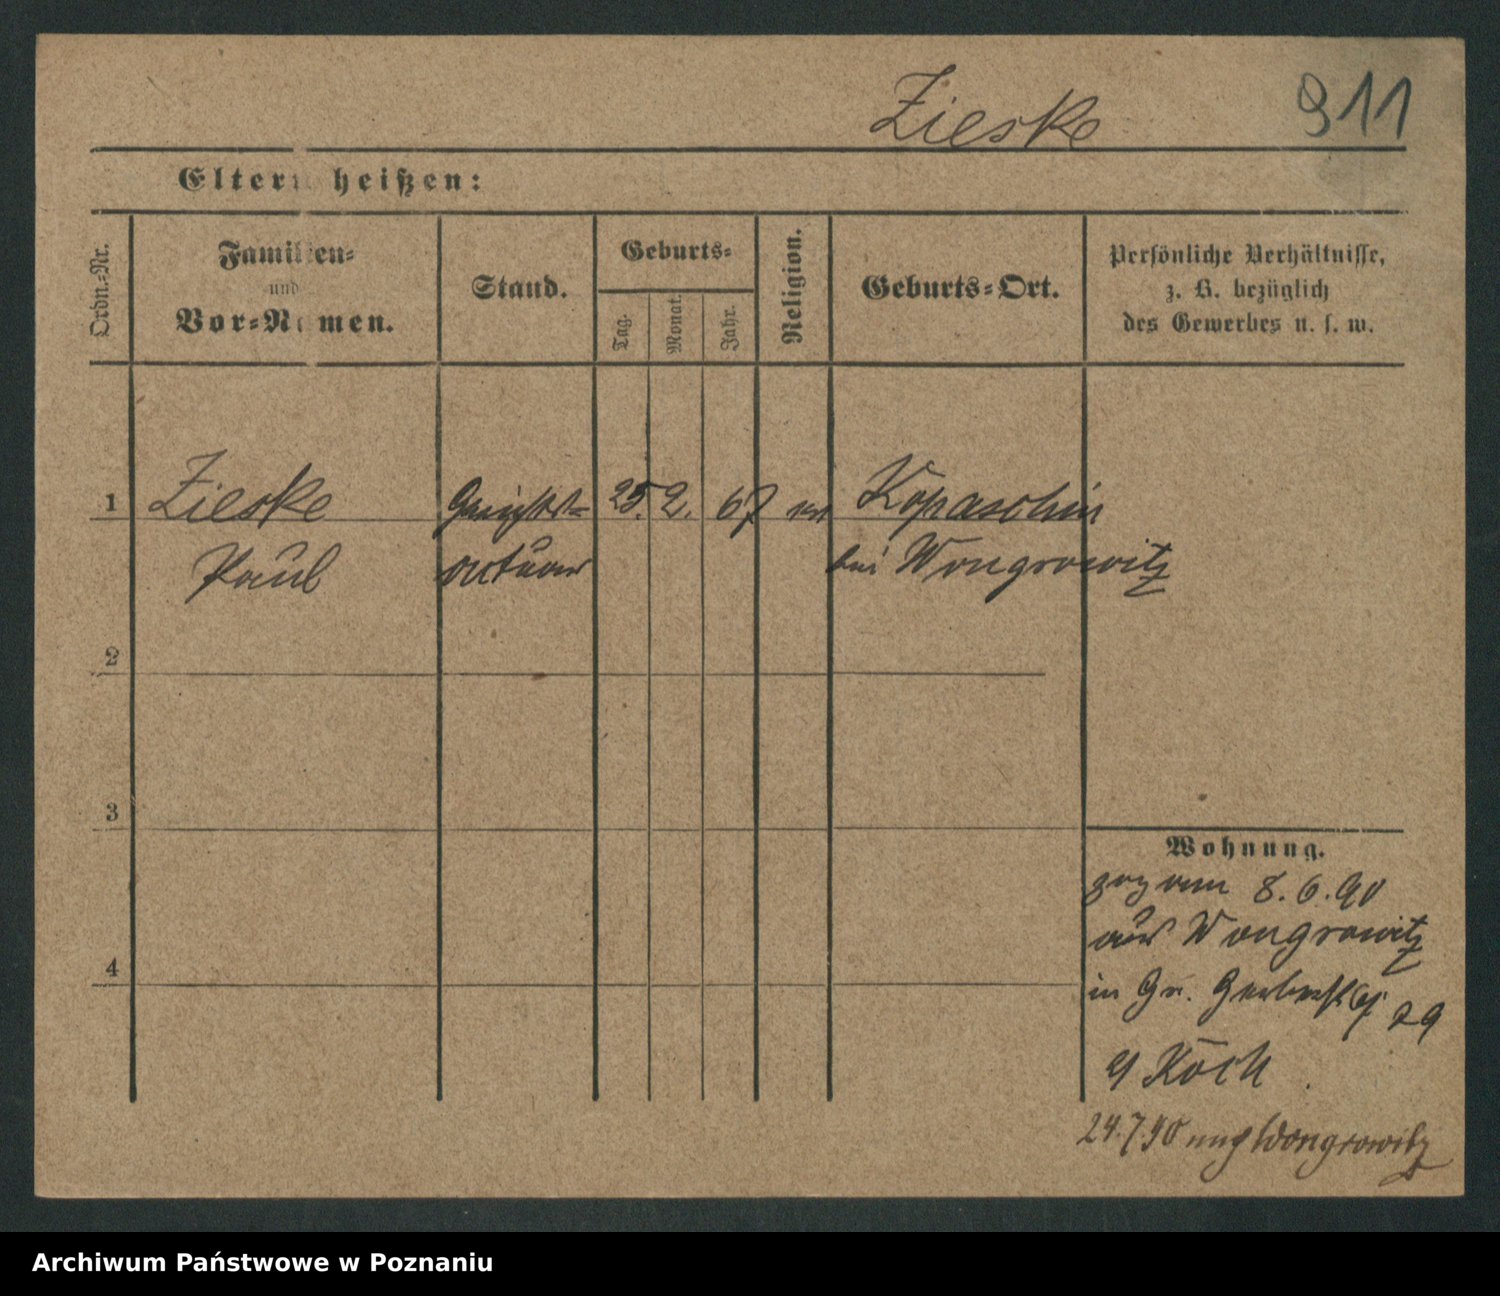 Zieske 911
Eltern heißen:
Ordn.-Nr.
Familien-
und
Vor-Namen.
Stand.
Geburts-
Tag.
Monat.
Jahr.
Religion.
Geburts-Ort.
Persönliche Verhältnisse,
z. B. bezüglich
des Gewerbes u. s. w.
1 Zieske Gerichts- 25. 2. 67 Kopaschin
Paul actuar bei Wongrowitz
2
3
Wohnung.
zog am 8.6.90
aus Wongrowitz
in Gr. 29
4
Koch
24.7.90 nach Wongrowitz
Archiwum Państwowe w Poznaniu